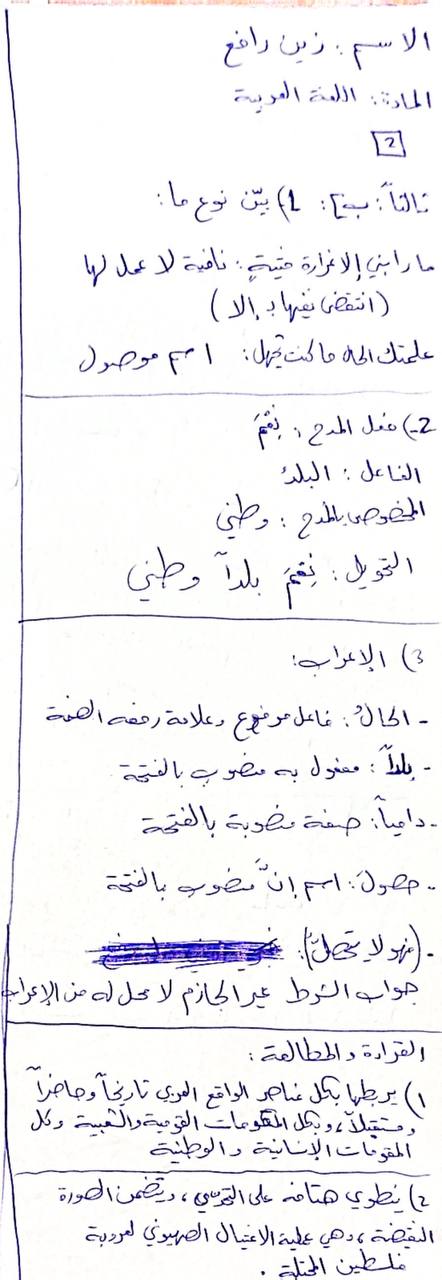 الاسم : زين رافع
المادة : اللغة العربية
2
ثالثاً : ب] : 1) بيّن نوع ما :
ما رابني إلا غرارة فتيةٍ : نافية لا عمل لها
(انتقض نفيها بـ إلا)
علمتك الحال ما كنت تجهل : اسم موصول
2-) فعل المدح : نِعْمَ
الفاعل : البلدُ
المخصوص بالمدح : وطني
التحويل : نِعْمَ بلداً وطني
3) الإعراب :
- الحالُ : فاعل مرفوع وعلامة رفعه الضمة
- بلداً : مفعول به منصوب بالفتحة
- دامياً : صفة منصوبة بالفتحة
- حصولَ : اسم إنّ منصوب بالفتحة
- (فهو لا تحصل) :
جواب الشرط غير الجازم لا محل له من الإعراب
القراءة والمطالعة :
1) يربطها بكل عناصر الواقع العربي تاريخاً وحاضراً
ومستقبلاً، وبكل المقومات القومية والشعبية وكل
المقومات الإنسانية والوطنية
2) ينطوي هتافه على التحدي ، ويتضمن الصورة
النقيضة ، وهي عملية الاغتيال الصهيوني لعروبة
فلسطين المحتلة .